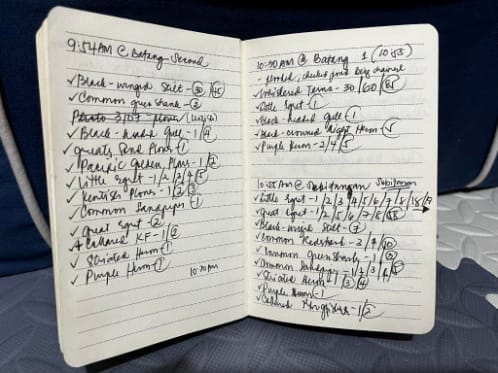 9:54AM @ Batang Second
✓ Black-winged Stilt - 30/45
✓ Common Greenshank - 2
✓ Black-headed Gull - 1/9
✓ Greater Sand Plover 1
✓ Pacific Golden Plover - 1/2
✓ Little Egret - 1/2/3/4/5
✓ Kentish Plover - 1/2/3
✓ Common Sandpiper - 1
✓ Great Egret - 2
✓ Collared KF - 1/2
✓ Striated Heron 1
✓ Purple Heron 1
10:20AM
10:30AM @ Batang 1 (10:53)
- flooded,
✓ Whiskered Terns - 30/60/
✓ Little Egret - 1
✓ Black-headed Gull - 1
✓ Black-crowned Night Heron
✓ Purple Heron - 2/4/5
10:55AM @ Sapitangan
✓ Little Egret - 1/2/3/4/5/6/7/8/
✓ Great Egret - 1/2/5/6/7/8/
✓ Black-winged Stilt - 7
✓ Common Redshank - 2/7/10
✓ Common Greenshank - 1/
✓ Common Sandpiper - 1/2/3/4/5
✓ Striated Heron 1/3/4
✓ Purple Heron - 1
✓ Collared Kingfisher - 1/2